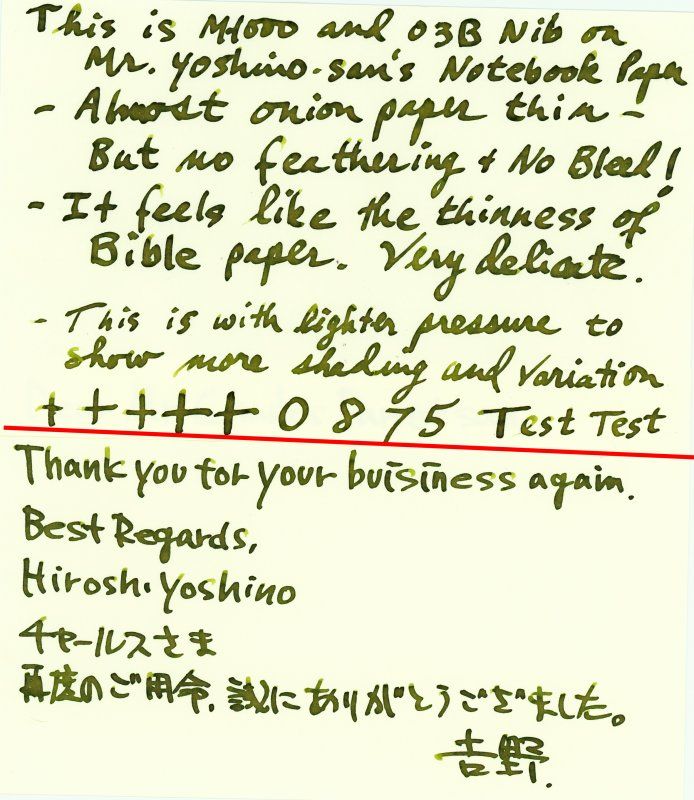 This is M1000 and 03B Nib on
Mr. Yoshino-san's Notebook Paper
- Almost onion paper thin -
But no feathering + No Bleed!
- It feels like the thinness of
Bible paper. Very delicate.
- This is with lighter pressure to
show more shading and variation
+ + + + + 0 8 7 5 Test Test
Thank you for your buisiness again.
Best Regards,
Hiroshi Yoshino
チャールスさま
再度のご用命、誠にありがとうございました。
吉野.